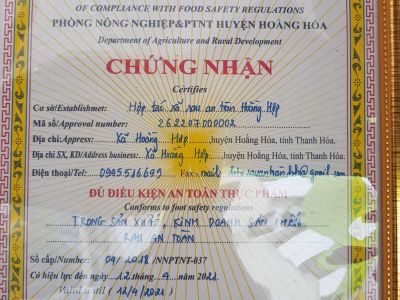 OF COMPLIANCE WITH FOOD SAFETY REGULATIONS
PHÒNG NÔNG NGHIỆP&PTNT HUYỆN HOẰNG HÓA
Department of Agriculture and Rural Development
CHỨNG NHẬN
Certifies
Cơ sở/Establishmet: Hợp tác xã rau an toàn Hoằng Hợp
Mã số/Approval number: 26.22.07.000002
Địa chỉ/Appress: Xã Hoằng Hợp, huyện Hoằng Hóa, tỉnh Thanh Hóa.
Địa chỉ SX, KD/Address business: Xã Hoằng Hợp, huyện Hoằng Hóa, tỉnh Thanh Hóa.
Điện thoại/Tel: 0945.516699 Fax
ĐỦ ĐIỀU KIỆN AN TOÀN THỰC PHẨM
Conforms to foot safety regulations
TRONG SẢN XUẤT, KINH DOANH SẢN PHẨM:
RAU AN TOÀN
Số cấp/Number: 04/2018/NNPTNT-037
Có hiệu lực đến ngày 12 tháng 4 năm 2021
Valid until (12/4/2021)